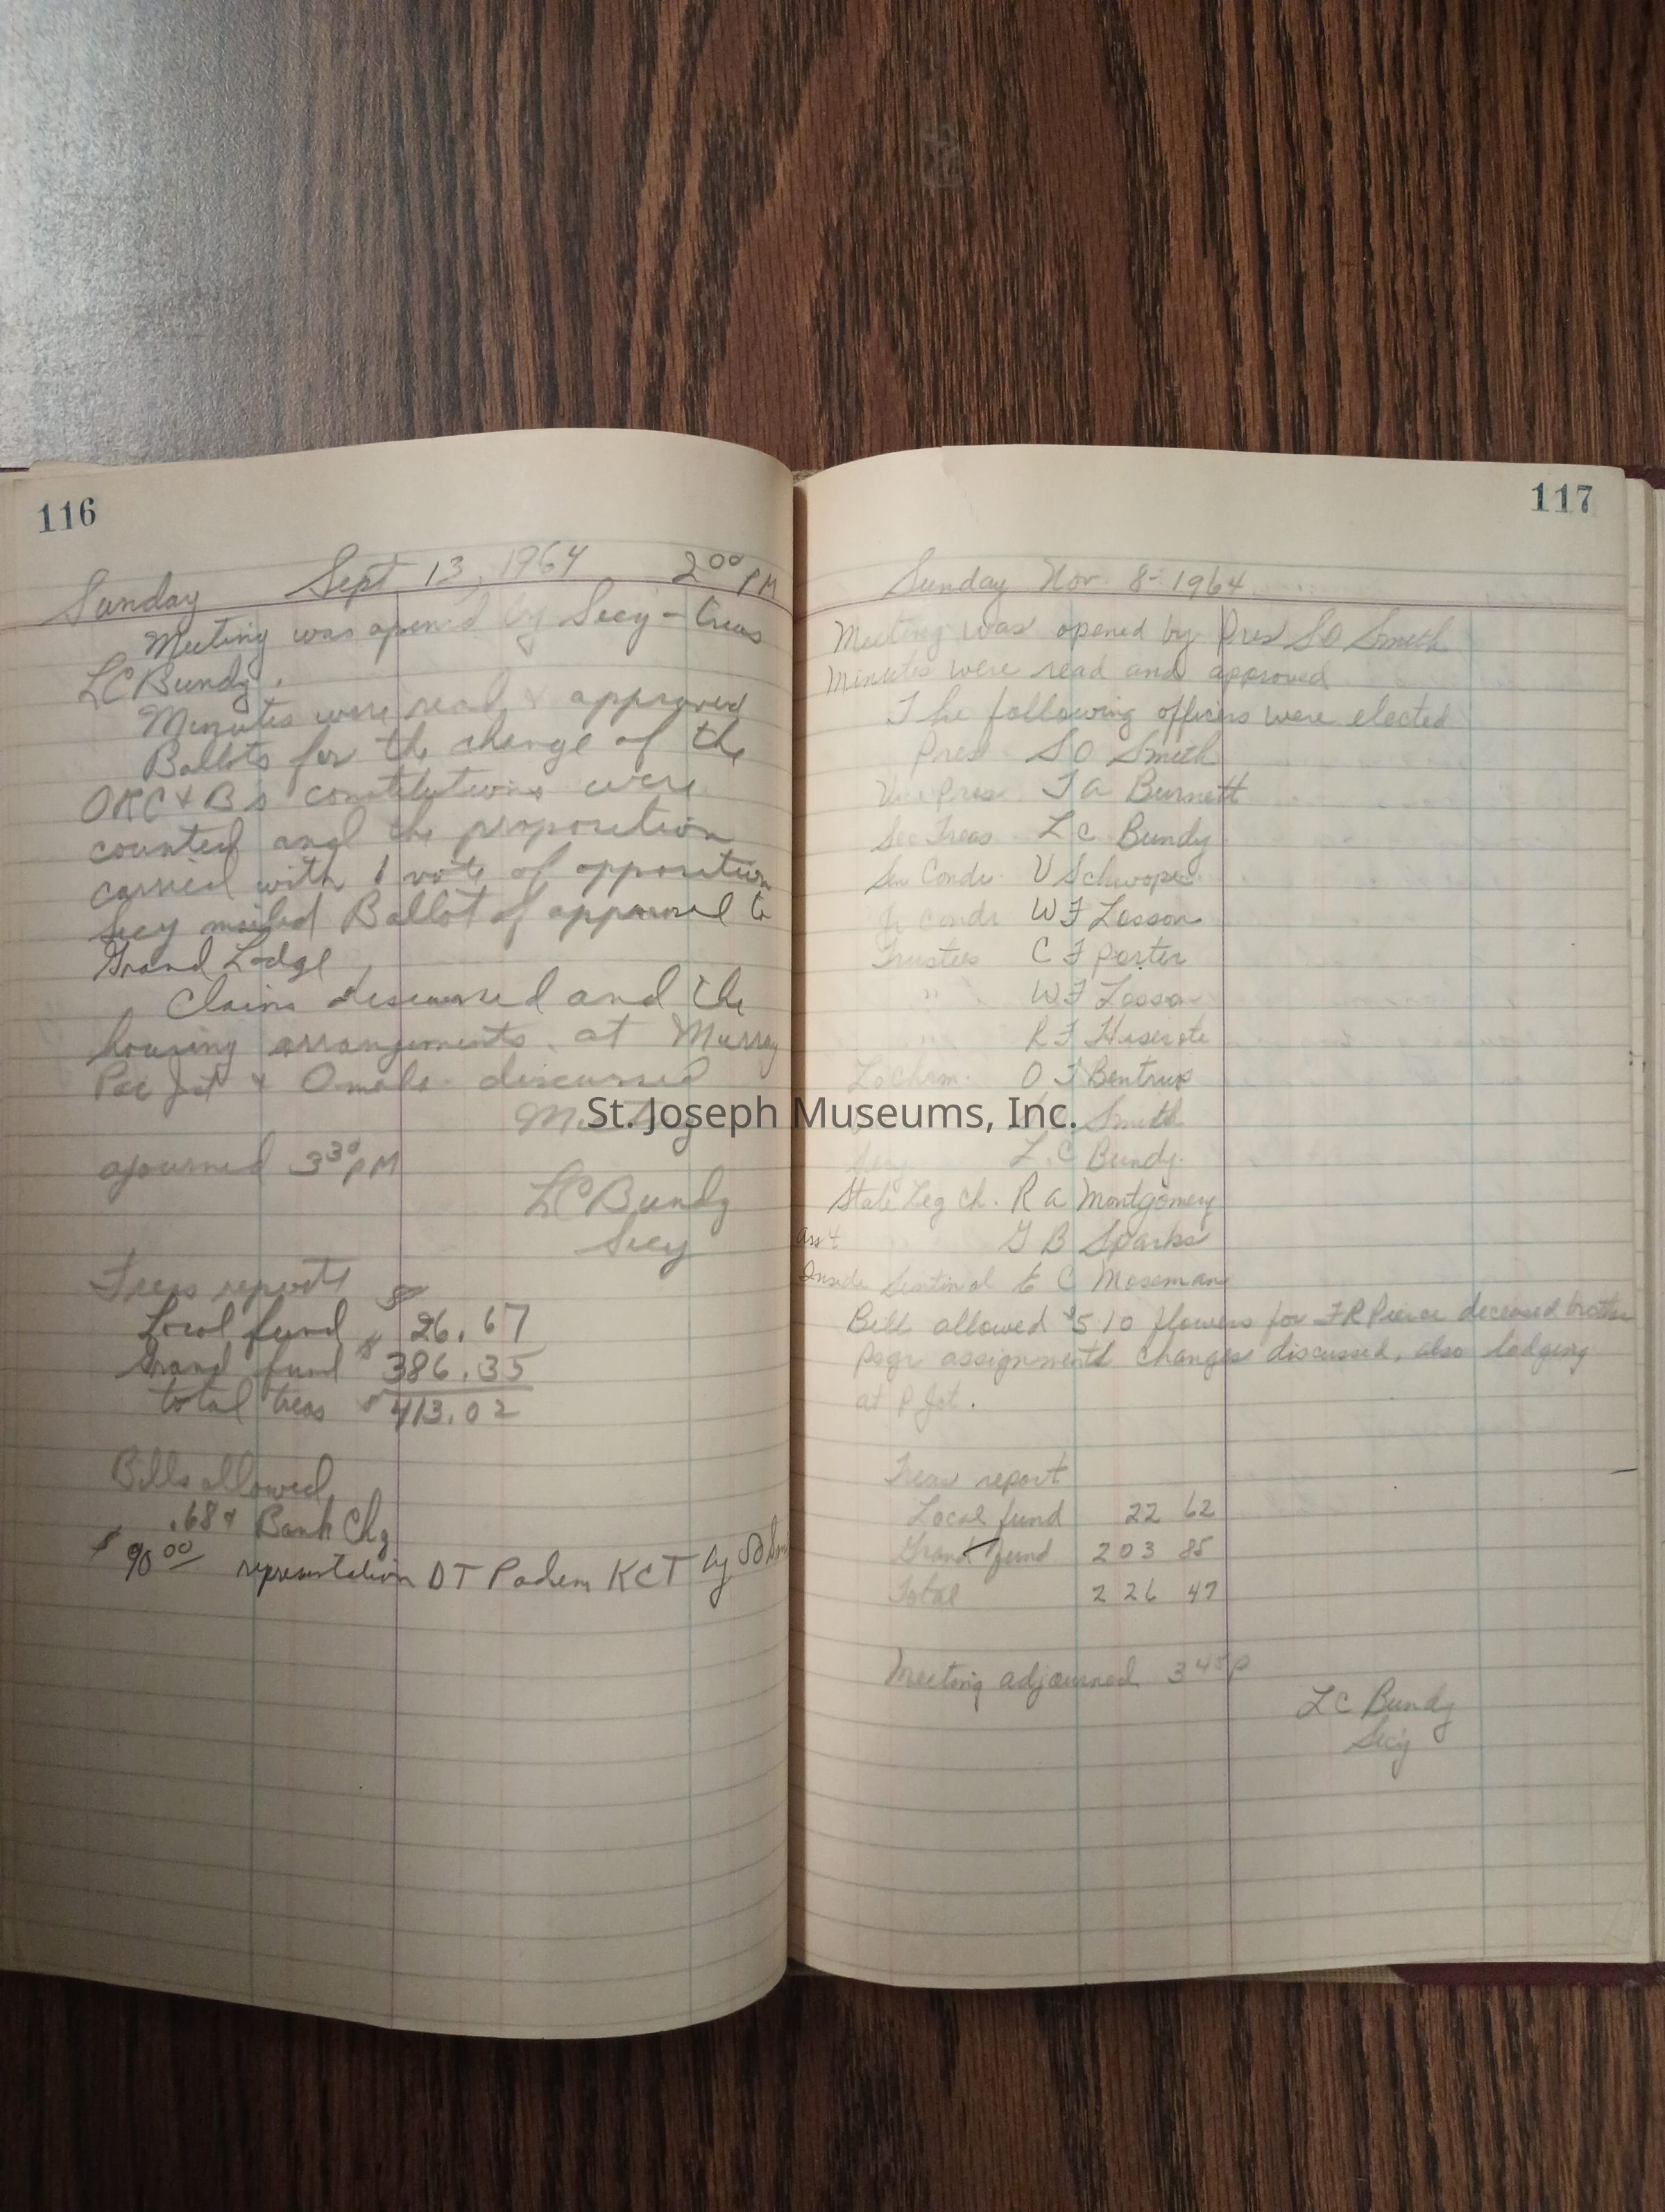 116
Sunday Sept 13, 1964 2 00 PM
Meeting was open'd by Secy - Treas
LC Bundy.
Minutes were read & approved
Ballots for the change of the
ORC & B s constitutions were
counted and the proposition
carried with 1 vote of opposition
Secy mailed Ballot of approval to
Grand Lodge
Claims discussed and the
housing arrangements at Murray
Pac Jct & Omaha discussed
Meeting
ajourned 3 30 PM
LC Bundy
Secy
Treas report
Local fund $ 26.67
Grand fund $ 386.35
total treas $ 413.02
Bills allowed
.68¢ Bank Chg
$ 90 00 representation DT KCT by SO
117
Sunday Nov. 8 - 1964
Meeting was opened by Pres SO Smith
Minutes were read and approved
The following officers were elected
Pres SO Smith
Vice Pres. T A Burnett
Sec Treas L C Bundy
Sen Condr V Schwope
Jr Condr W F Lesson
Trustees C F Porter
" W F Lesson
" R F Haserote
Lo Chrm. O F Bentrup
Smith
Secy L.C Bundy.
State Leg Ch. R A Montgomery
Ass't G B Sparks
Inside Sentinal E C Moseman
Bill allowed $5 10 flowers for FR Pierce deceased brother
Psgr assignment changes discussed, also lodging
at P Jct.
Treas report
Local fund 22 62
Grand fund 203 85
Total 226 47
Meeting adjourned 3 45 P
LC Bundy
Secy
St. Joseph Museums, Inc.